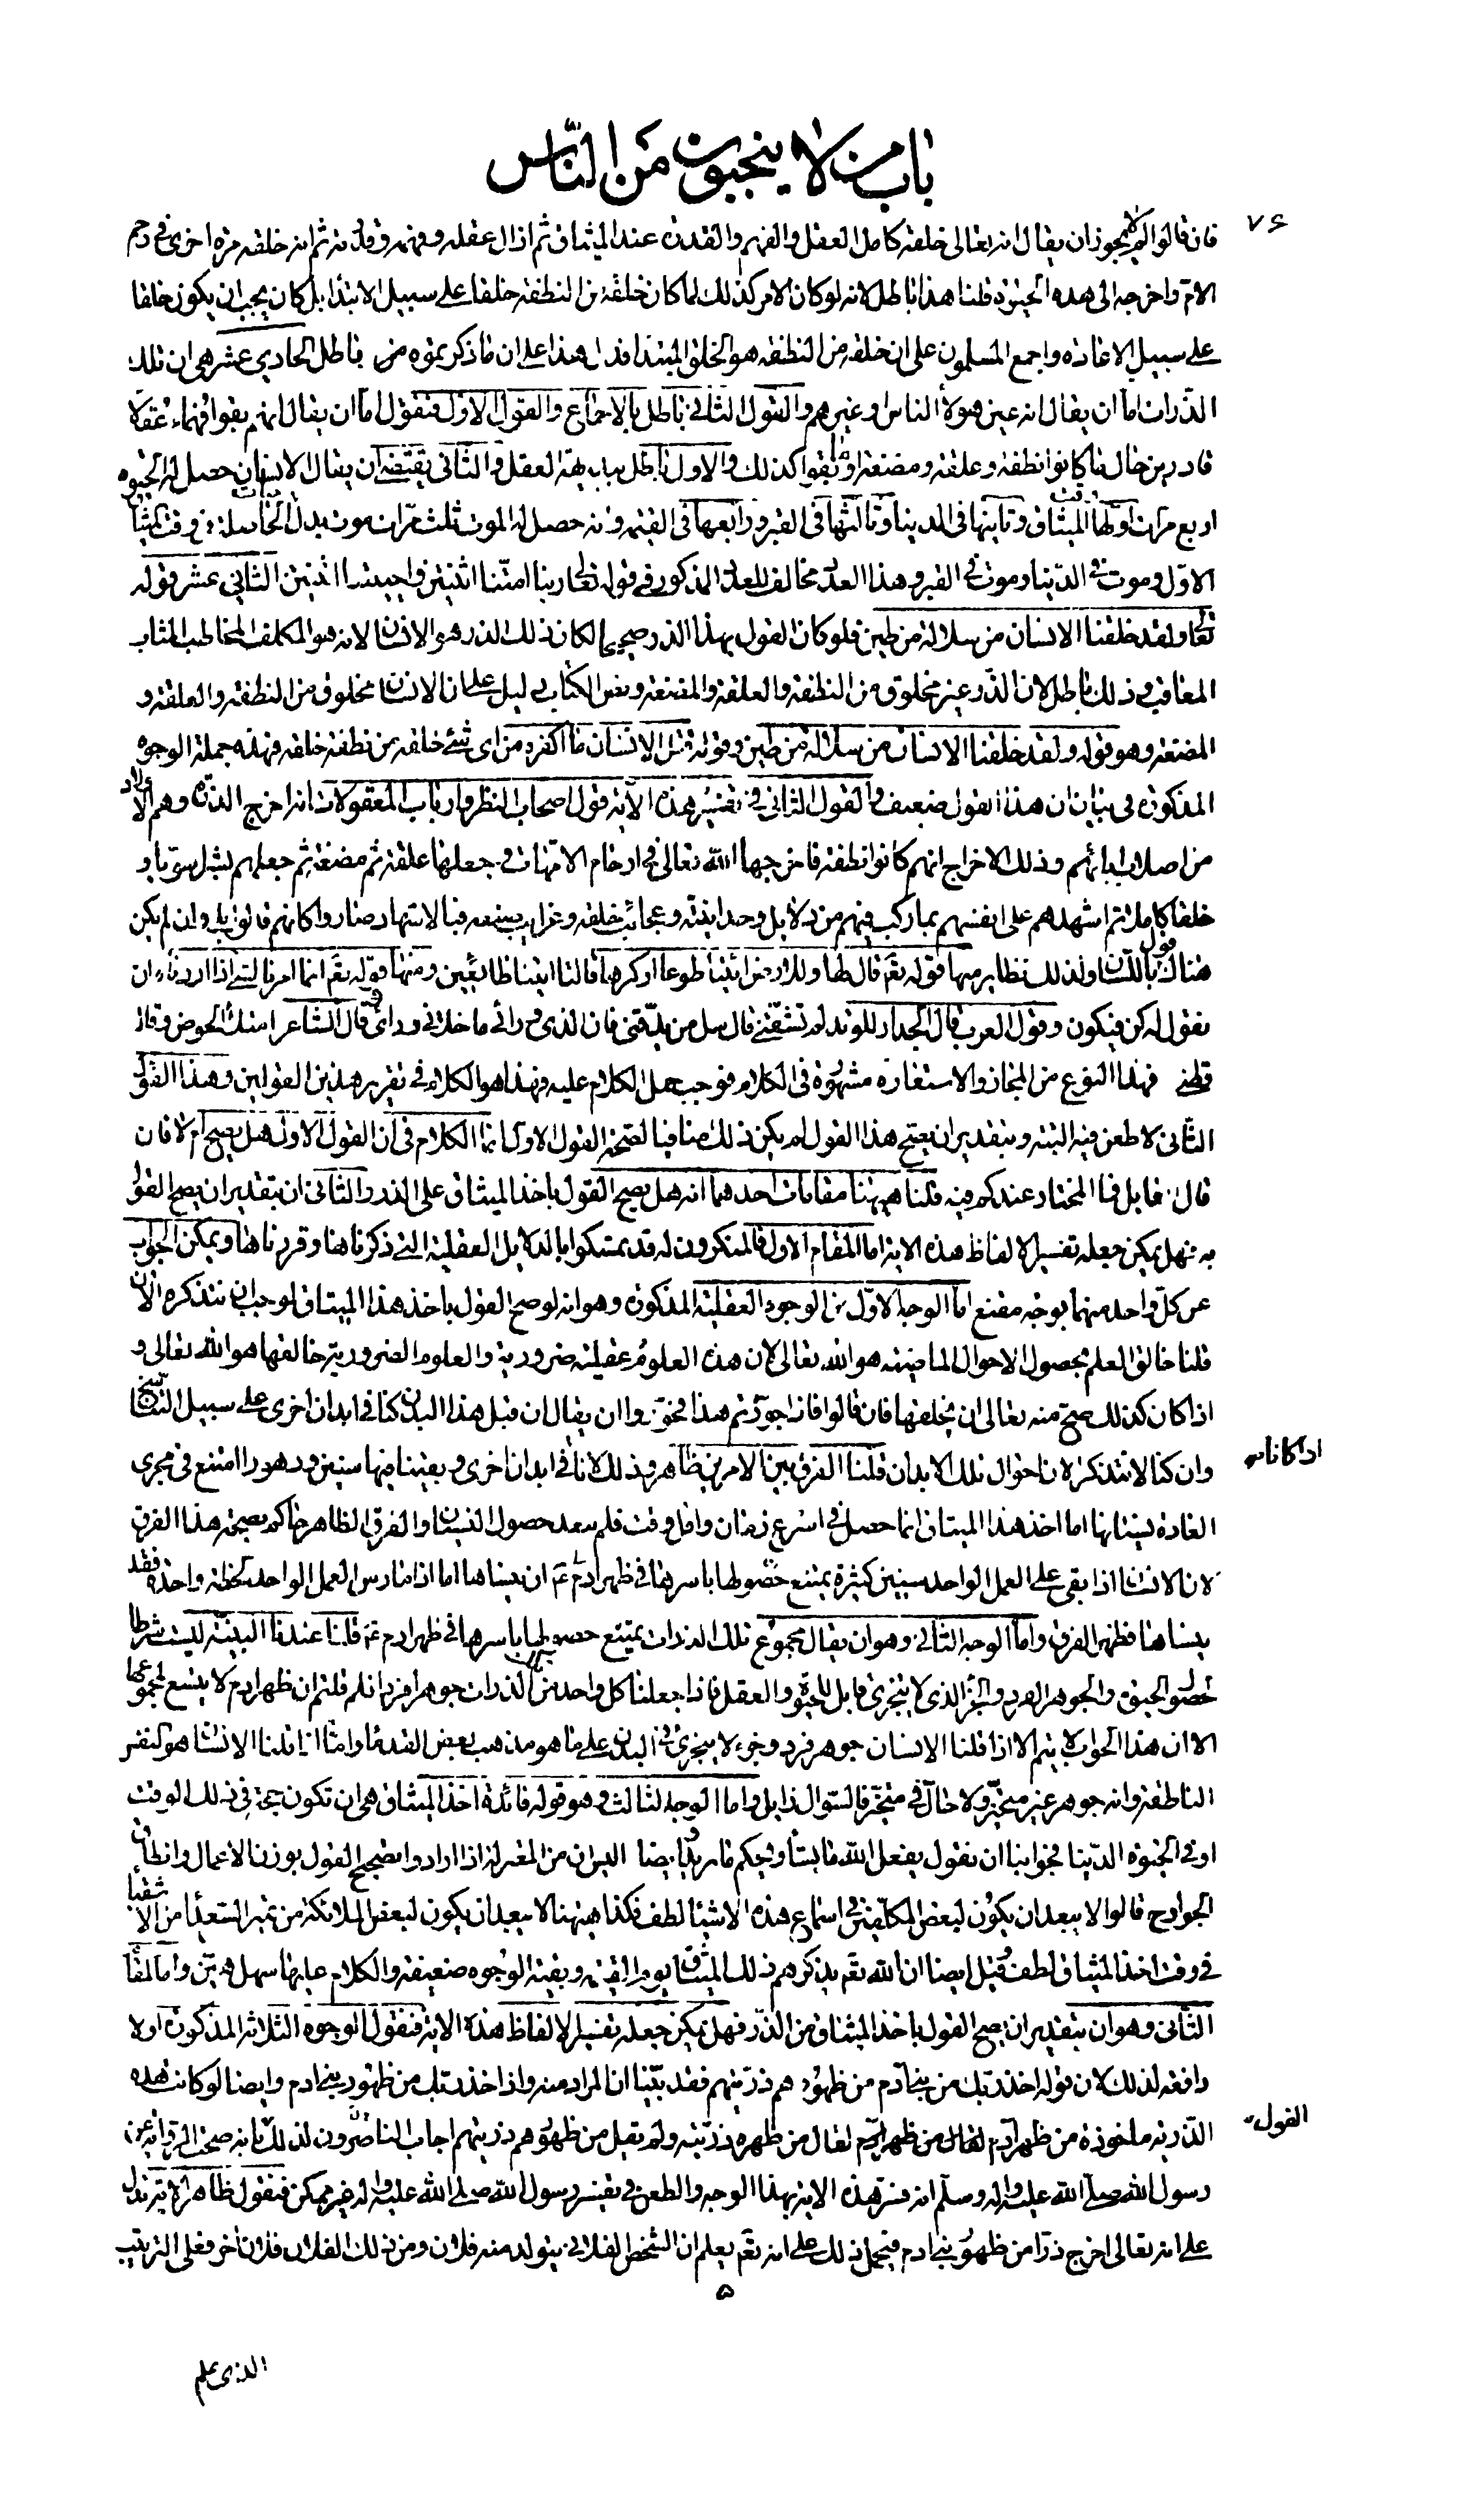 باب من لا ينجبون من الناس
٧٦
فان قالوا لم لا يجوز ان يقال انه تعالى خلقه كامل العقل والفهم والقدرة عند الميثاق ثم ازال عقله وفهمه وقدرته ثم انه خلقه مرة اخرى فى رحم
الام واخرجه الى هذه الحيوة قلنا هذا باطل لانه لو كان الامر كذلك لما كان خلقه من النطفة خلقا على سبيل الابتداء بل كان يجب ان يكون خلقا
على سبيل الاعادة واجمع المسلمون على ان خلقه من النطفة هو الخلق المبتدا فدل هذا على ان ما ذكرتموه باطل الحادي عشر هى ان تلك
الذرات اما ان يقال انه عين هولاء الناس او غيرهم والقول الثانى باطل بالاجماع والقول الاول فنقول اما ان يقال انهم بقوا فهماء عقلاء
قادرين حال ما كانوا نطفة وعلقة ومضغة او ما بقوا كذلك والاول باطل ببديهة العقل والثانى يقتضى ان يقال الانسان حصل له الحيوة
اربع مرات اولها وقت الميثاق وثانيها فى الدنيا وثالثها فى القبر ورابعها فى القيمة وانه حصل له الموت ثلث مرات موت بعد الحيوة الحاصلة فى وقت الميثاق
الاول وموت فى الدنيا وموت فى القبر وهذا العدد مخالف للعدد المذكور فى قوله تعالى ربنا امتنا اثنتين واحييتنا اثنتين الثانى عشر قوله
تعالى ولقد خلقنا الانسان من سلالة من طين فلو كان القول بهذا الذر صحيحا لكان ذلك الذر هو الانسان لانه هو المكلف المخاطب المثاب
المعاقب وذلك باطل لان الذر غير مخلوق من النطفة والعلقة والمضغة ونص الكتاب دليل على ان الانسان مخلوق من النطفة والعلقة و
المضغة وهو قوله ولقد خلقنا الانسان من سلالة من طين وقوله قتل الانسان ما اكفره من اى شئ خلقه من نطفة خلقه فهذه جملة الوجوه
المذكورة فى بيان ان هذا القول ضعيف والقول الثانى فى تفسير هذه الآية قول اصحاب النظر وارباب المعقولات انه اخرج الذرة وهم الاولاد
من اصلاب ابائهم وذلك الاخراج انهم كانوا نطفة فاخرجها الله تعالى فى ارحام الامهات وجعلها علقة ثم مضغة ثم جعلهم بشرا سويا و
خلقا كاملا ثم اشهدهم على انفسهم بما ركب فيهم من دلائل وحدانيته وعجائب خلقه وغرائب صنعه فبالاشهاد صاروا كانهم قالوا بلى وان لم يكن
هناك قول باللسان ولذلك نظائر منها قوله تع فقال لها وللارض ائتيا طوعا او كرها قالتا اتينا طائعين ومنها قوله تع انما امرنا لشئ اذا اردناه ان
نقول له كن فيكون وقول العرب قال الجدار للوتد لم تشقنى قال سل من يدقنى فان الذى ورائى ما خلانى ورائى وقال الشاعر امتلا الحوض وقال
قطنى فهذا النوع من المجاز والاستعارة مشهورة فى الكلام فوجب حمل الكلام عليه فهذا هو الكلام فى تقرير هذين القولين وهذا القول
الثانى لا طعن فيه البتة وبتقدير ان يصح هذا القول لم يكن ذلك منافيا لصحة القول الاول انما الكلام فى ان القول الاول هل يصح ام لا فان
قال قائل فما المختار عندكم فيه قلنا هيهنا مقامات احدهما انه هل يصح القول باخذ الميثاق على الذر والثانى ان بتقدير ان يصح القول
به فهل يمكن جعله تفسيرا لالفاظ هذه الاية اما المقام الاول فالمنكرون له قد تمسكوا بالدلايل العقلية التى ذكرناها وقررناها ويمكن الجواب
عن كل واحد منهما بوجه مقنع اما الوجه الاول من الوجوه العقلية المذكورة وهو انه لو صح القول باخذ هذا الميثاق لوجب ان نتذكره الان
قلنا خالق العلم بحصول الاحوال الماضية هو الله تعالى لان هذه العلوم عقلية ضرورية والعلوم الضرورية خالقها هو الله تعالى و
اذا كان كذلك صح منه تعالى ان يخلقها فان قالوا فاذا جوزتم هذا فجوزوا ان يقال ان قبل هذا البدن كنا فى ابدان اخرى على سبيل التناسخ
وان كنا لا نتذكر الان احوال تلك الابدان قلنا الفرق بين الامرين ظاهر وذلك لانا اذا كنا فى ابدان اخرى وبقينا فيها سنين ودهورا امتنع فى مجرى
العادة نسيانها اما اخذ هذا الميثاق انما حصل فى اسرع زمان واقل وقت فلم يبعد حصول النسيان والفرق الظاهر حاكم بصحة هذا الفرق
لان الانسان اذا بقى على العمل الواحد سنين كثيرة يمتنع ان ينساها اما اذا مارس العمل الواحد لحظة واحدة فقد
ينساها فظهر الفرق واما الوجه الثانى وهو ان يقال مجموع تلك الذرات يمتنع حصولها باسرها فى ظهر ادم ع قلنا عندنا البنية ليست شرطا
لحصول الحيوة والجوهر الفرد والجزء الذى لا يتجزى قابل للحيوة والعقل فاذا جعلنا كل واحد من تلك الذرات جوهرا فردا فلم قلتم ان ظهر ادم لا يتسع لمجموعها
الا ان هذا الجواب لا يتم الا اذا قلنا الانسان جوهر فرد وجزء لا يتجزى فى البدن على ما هو مذهب بعض القدماء واما اذا قلنا الانسان هو النفس
الناطقة وانه جوهر غير متحيز ولا حال فى متحيز فالسوال زايل واما الوجه الثالث وهو قوله فائدة اخذ الميثاق هى ان تكون حجة فى ذلك الوقت
او فى الحيوة الدنيا فجوابنا ان نقول يفعل الله ما يشاء ويحكم ما يريد وايضا اليس ان من المعتزلة اذا ارادوا تصحيح القول بوزن الاعمال وانطاق
الجوارح قالوا لا يبعد ان يكون لبعض المكلفين فى استماع هذه الاشياء لطف فكذا هيهنا لا يبعد ان يكون لبعض الملائكة من تميز السعداء من الاشقياء
فى وقت اخذ الميثاق لطف وقيل ايضا ان الله تع يذكرهم ذلك الميثاق يوم القيمة وبقية الوجوه ضعيفة والكلام عليها سهل هين واما المقام
الثانى وهو ان بتقدير ان يصح القول باخذ الميثاق من الذر فهل يمكن جعله تفسيرا لالفاظ هذه الاية فنقول الوجوه الثلاثة المذكورة اولا
دافعة لذلك لان قوله اخذ ربك من بنى آدم من ظهورهم ذريتهم فقد بينا ان المراد منه واذ اخذ ربك من ظهور بنى ادم وايضا لو كانت هذه
الذرية ماخوذة من ظهر آدم لقال من ظهره ذريته ولم يقل من ظهورهم ذريتهم اجاب الناصرون لذلك القول بانه صحت الرواية عن
رسول الله صلى الله عليه واله وسلم انه فسر هذه الاية بهذا الوجه والطعن فى تفسير رسول الله صلى الله عليه واله غير ممكن فنقول ظاهر الاية تدل
على انه تعالى اخرج ذرا من ظهور بنى ادم فيحمل ذلك على انه تع يعلم ان الشخص الفلانى يتولد منه فلان ومن ذلك الفلان فلان اخر فعلى الترتيب
الذى علم